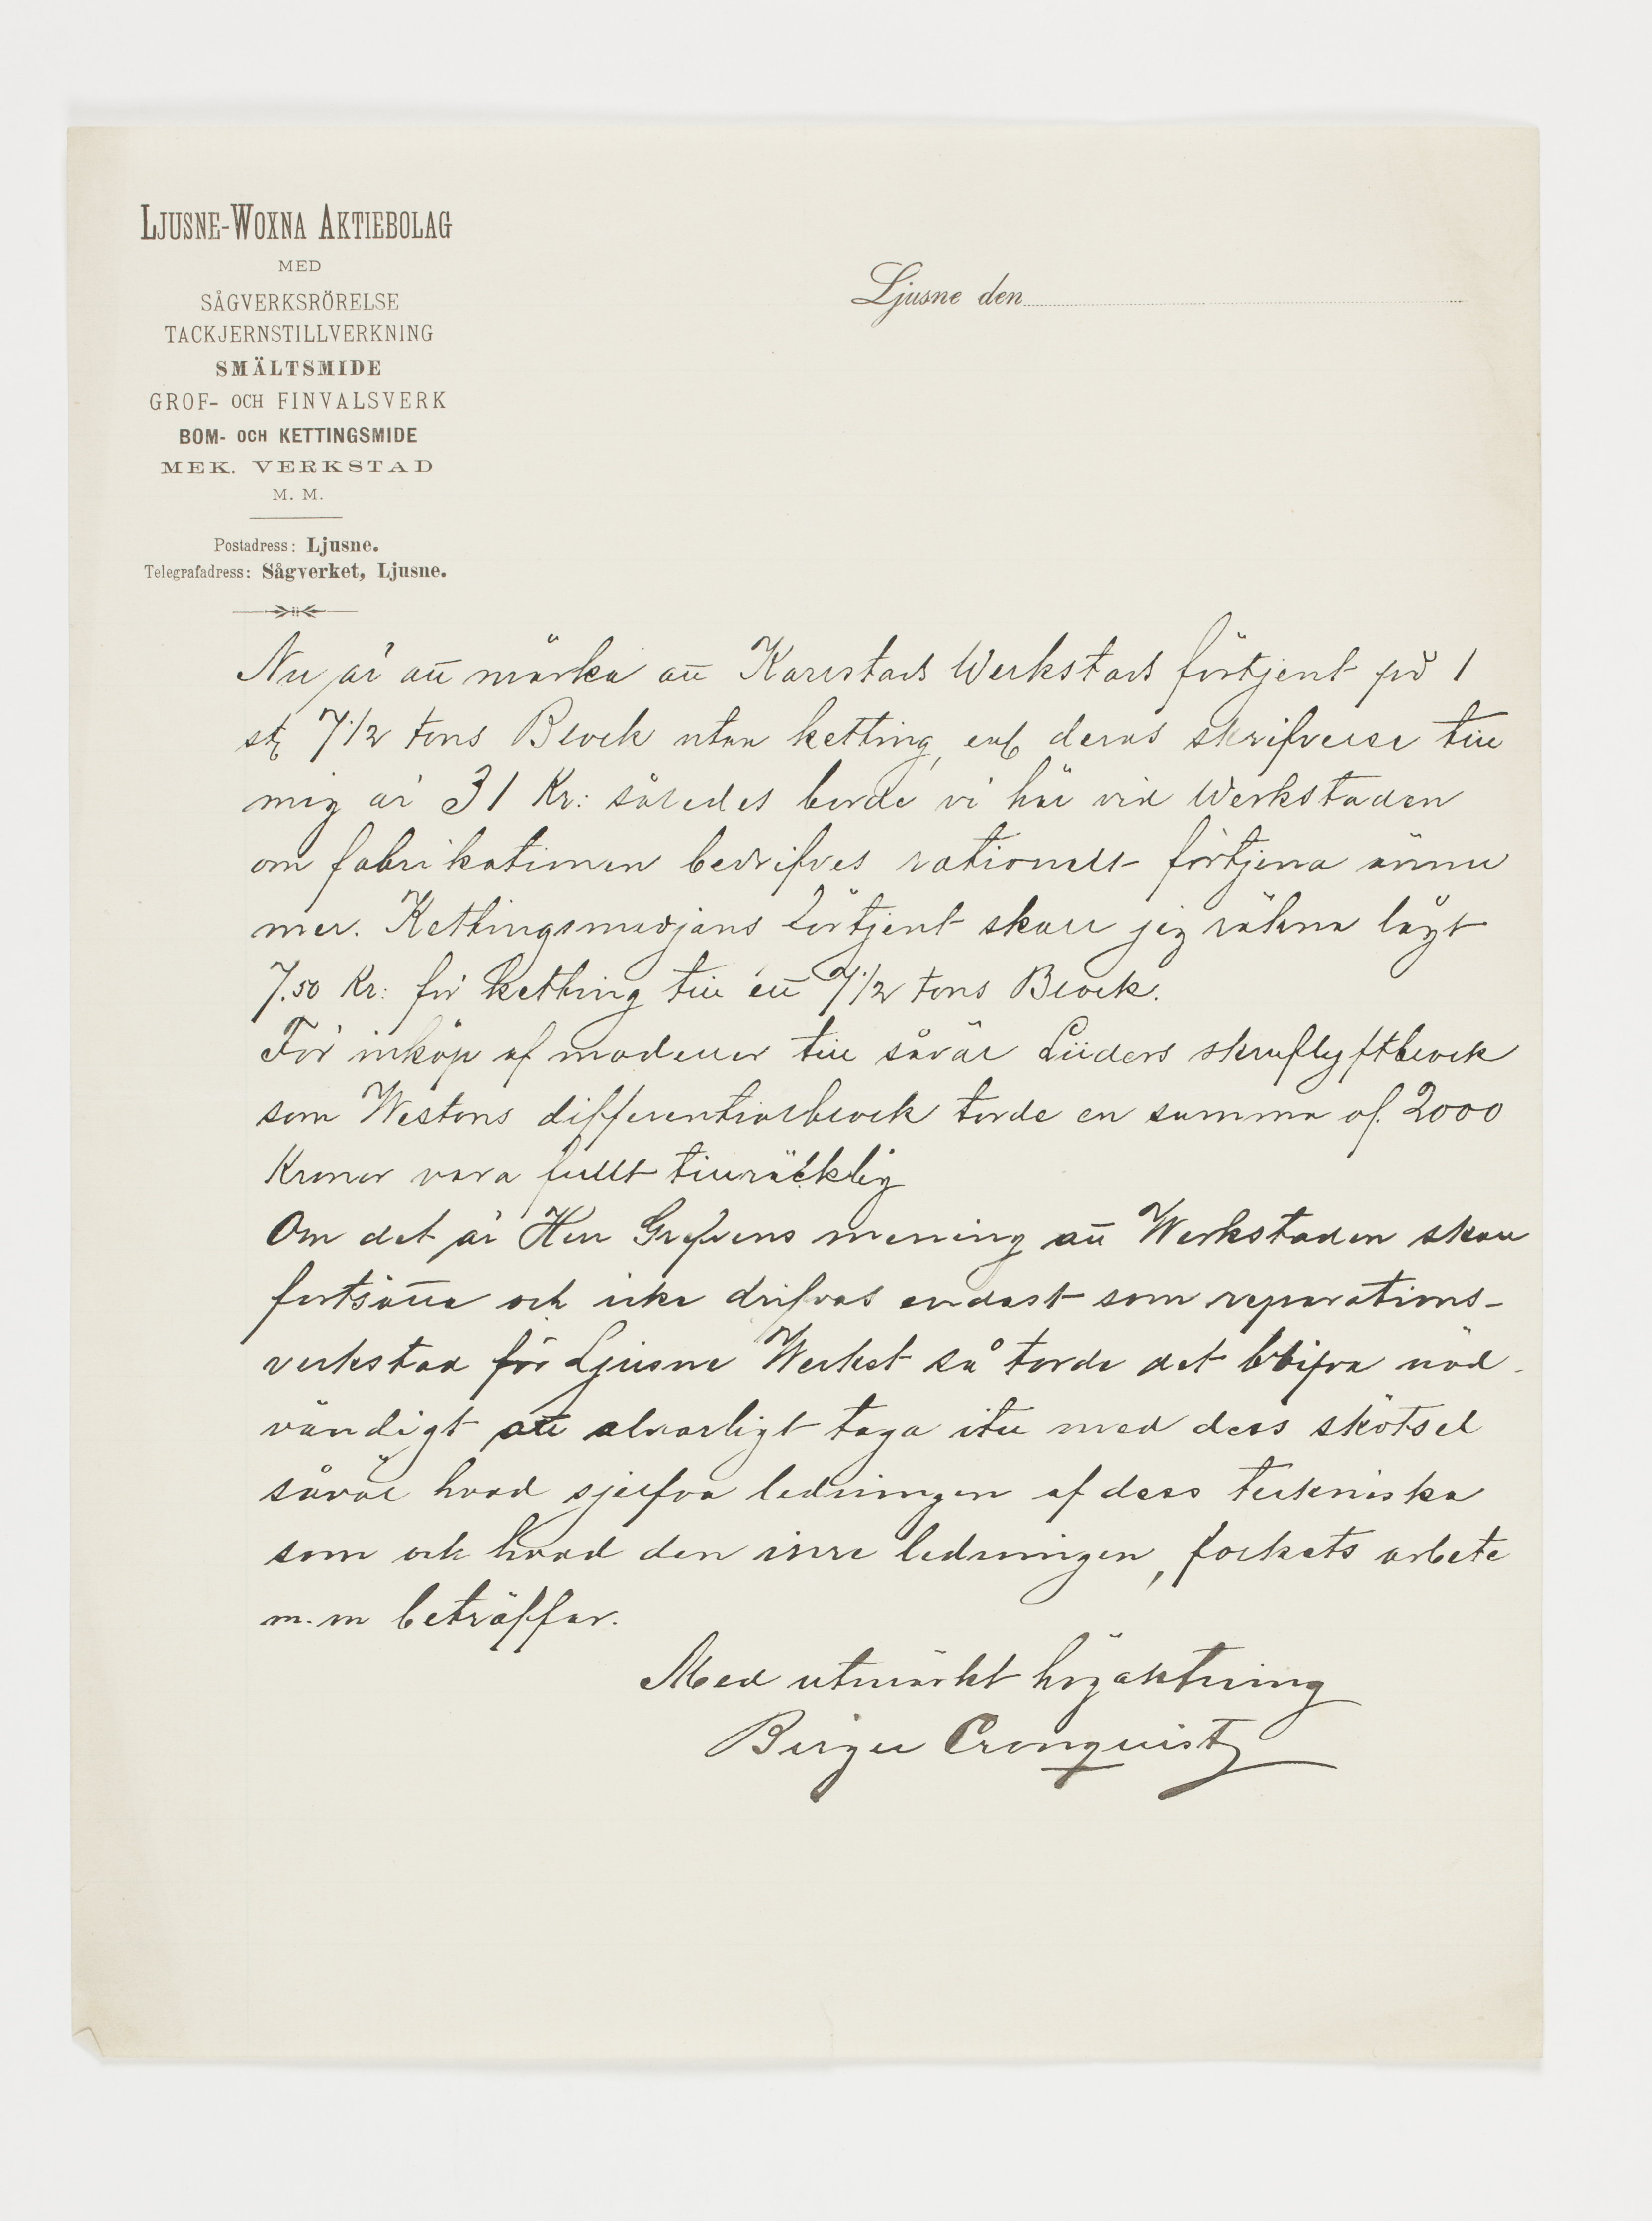 LJUSNE-WOXNA AKTIEBOLAG
MED
SÅGVERKSRÖRELSE
TACKJERNSTILLVERKNING
SMÄLTSMIDE
GROF- OCH FINVALSVERK
BOM- OCH KETTINGSMIDE
MEK. VERKSTAD
M. M.
Postadress: Ljusne.
Telegrafadress: Sågverket, Ljusne.
Ljusne den
Nu är att märka att Karlstads Werkstads förtjenst på 1
st 7 1/2 tons Block utan ketting, enl deras skrifvelse till
mig är 31 Kr: således borde vi här vid Werkstaden
om fabrikationen bedrifves rationellt förtjena ännu
mer. Kettingsmedjans förtjenst skall jeg räkna lågt
7.50 Kr: för ketting till ett 7 1/2 tons Block.
För inköp af modeller till såväl Lüders skruflyftblock
som Westons differentialblock torde en summa af 2000
Kronor vara fullt tillräcklig
Om det är Herr Grefvens mening att Werkstaden skall
fortsätta och icke drifvas endast som reparations-
verkstad för Ljusne Werket så torde det blifva nöd-
vändigt att alvarligt taga itu med dess skötsel
såväl hvad sjelfva ledningen af dess tekniska
som ock hvad den inre ledningen, folkets arbete
m. m beträffar.
Med utmärkt högaktning
Birger Cronquist